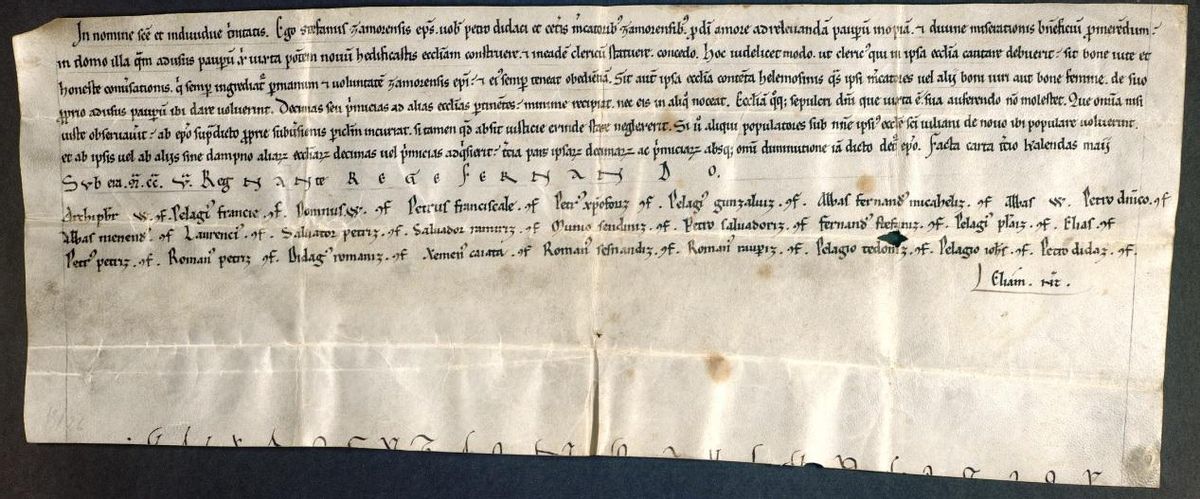 In nomine scē et indiuidue t'nitatis. Ego stefanus zamorensis ep̄s. uob' petro didaci et cet'is m'catorib' zamorensib'. p dī amore ad releuandā paup̄ū inopiā. & diuine miserationis bn̄eficiū p̄merēdum.
in domo illa q̄m ad usus paup̄ū iuxta pōtem nouū hedificastis eccl̄iam construere. & in eadē clericū statuere. concedo. Hoc uidelicet modo. ut cleric' qui in ipsa eccl̄ia cantare debuerit. sit bone uite et
honeste conuersationis. q' semp ingrediat' p manum & uoluntatē zamorensis ep̄i. & ei semp teneat obediētiā. Sit autē ipsa eccl̄ia contēta helemosinis q̄s ipsi m'catores uel alij boni uiri aut bone femine. de suo
proprio ad usus paup̄ū ibi dare uoluerint. Decimas seu p'micias ad alias eccl̄ias p̄tinētes. minime recipiat. nec eis in aliq̄ noceat. Eccl̄iam q̄q; sepulcri dn̄i que iuxta ē. sua auferendo nō molestet. Que omīa nisi
iuste obseruauit. ab ep̄o sup̄dicto proprie subuersionis piclm̄ incurrat. si tamen q̄d absit iusticie exinde stare neglexerit. Si ū aliqui populatores sub nn̄e ipsi' eccl̄e scī iuliani de nouo ibi populare uoluerint.
et ab ipsis uel ab alijs sine dampno aliarꝝ eccl̄iarꝝ decimas uel p'micias adq'sierit. t'cia pars ipsarꝝ decimarꝝ ac p'miciarꝝ absq; omī diminutione iā dicto detur ep̄o. Facta carta t'cio kalendas maij
Svb era. m̄. cc̄. REGNANTE REGE FERNANDO.
Archipbr W. ɔf. Pelagi' francie. ɔf. Domnius W. ɔf Petrus franciscale. ɔf Petr' xpoforiz ɔf. Pelagi' gunzaluiz. ɔf. Abbas fernand' micaheliz. ɔf Abbas W. Petro dn̄ico. ɔf
Abbas menend'. ɔf Laurenci'. ɔf. Saluator petriz. ɔf. Saluador ramiriz. ɔf Munio sendiniz. ɔf. Petro saluadoriz. ɔf Fernand' stefaniz. ɔf. Pelagi' plaiz. ɔf. Elias. ɔf
Petr' petriz. ɔf. Roman' petriz ɔf. Didag' romaniz. ɔf. Xemen' cauata. ɔf. Roman' sesnandiz. ɔf. Roman' ɔf. Pelagio tedoniz. ɔf. Pelagio ioh̄s. ɔf. Petro didaz. ɔf.
Eliam. nt̄.